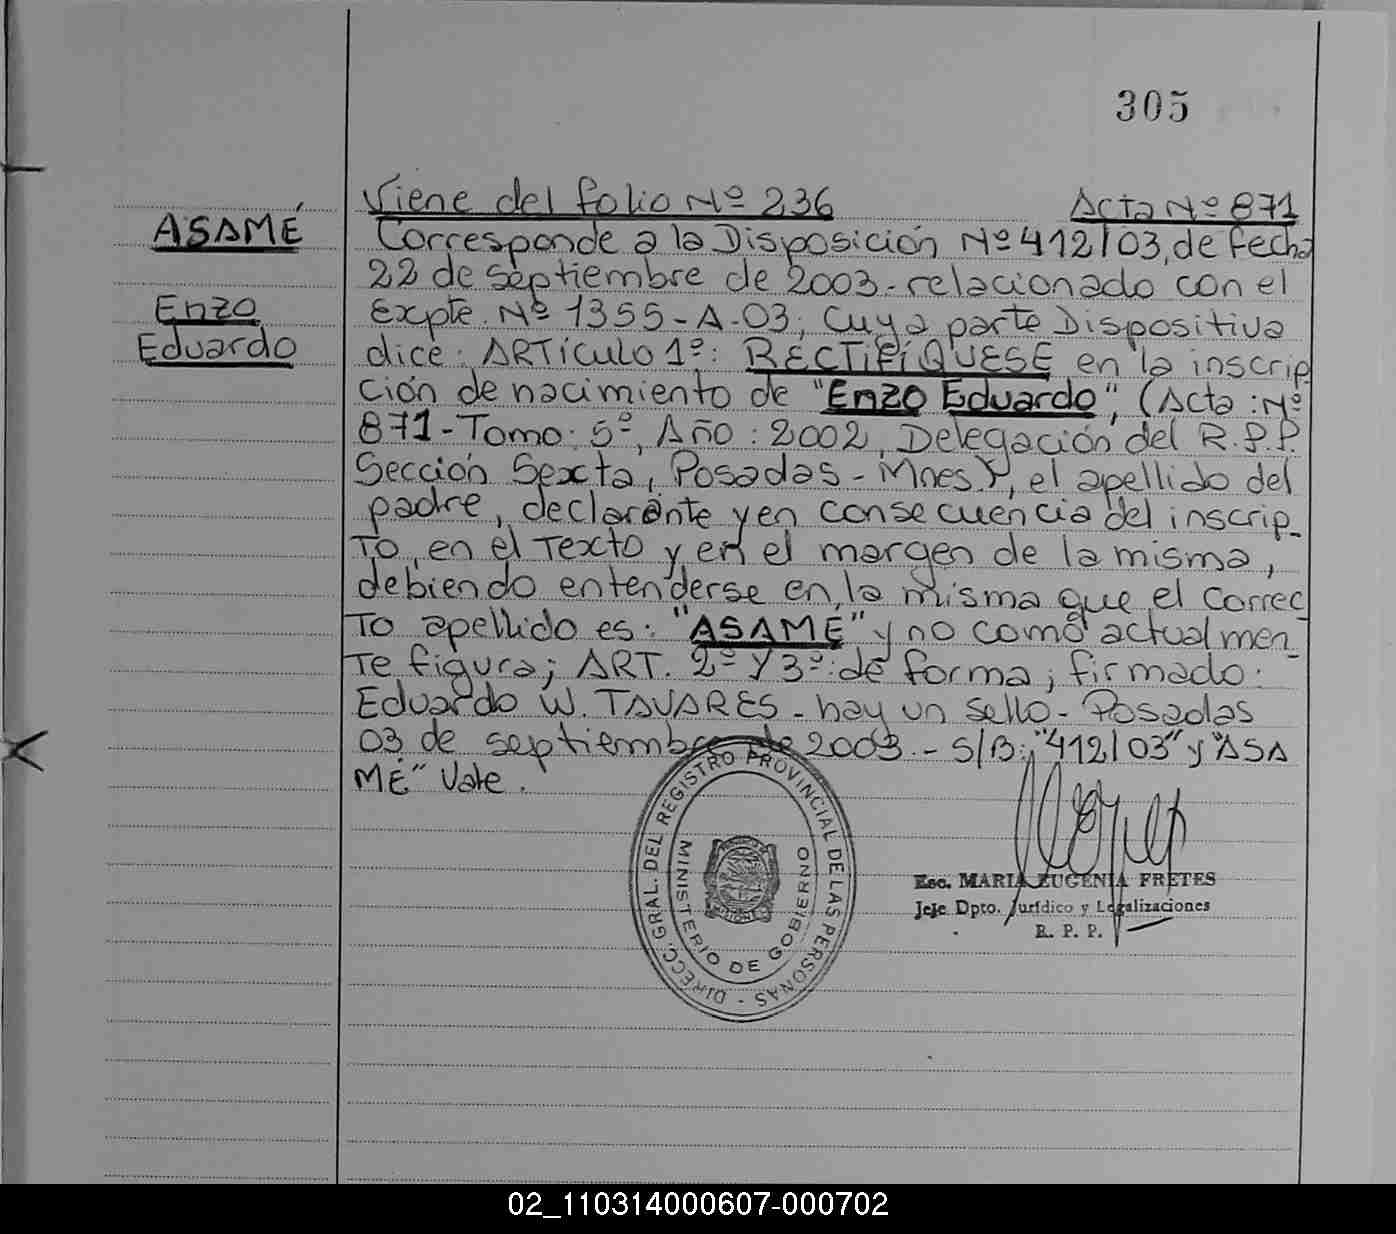 305
Viene del folio Nº 236 Acta Nº 871
ASAMÉ
Enzo
Eduardo
Corresponde a la Disposición Nº 412/03, de fecha
22 de septiembre de 2003 - relacionado con el
Expte. Nº 1355-A-03, cuya parte Dispositiva
dice: ARTÍCULO 1º: RECTIFÍQUESE en la inscrip
ción de nacimiento de "Enzo Eduardo", (Acta: Nº
871-Tomo: 5º, Año: 2002, Delegación del R.P.P.
Sección Sexta, Posadas - Mnes), el apellido del
padre, declarante y en consecuencia del inscrip-
to, en el texto y en el margen de la misma,
debiendo entenderse en la misma que el correc
to apellido es: "ASAMÉ" y no como actualmen-
te figura; ART. 2º y 3º: de forma; firmado:
Eduardo W. TAVARES - hay un sello - Posadas
03 de septiembre de 2003.- S/B: "412/03" y "ASA
MÉ" Vale.
DIRECC. GRAL. DEL REGISTRO PROVINCIAL DE LAS PERSONAS -
MINISTERIO DE GOBIERNO
Esc. MARIA EUGENIA FRETES
Jefe Dpto. Jurídico y Legalizaciones
R. P. P.
02_110314000607-000702